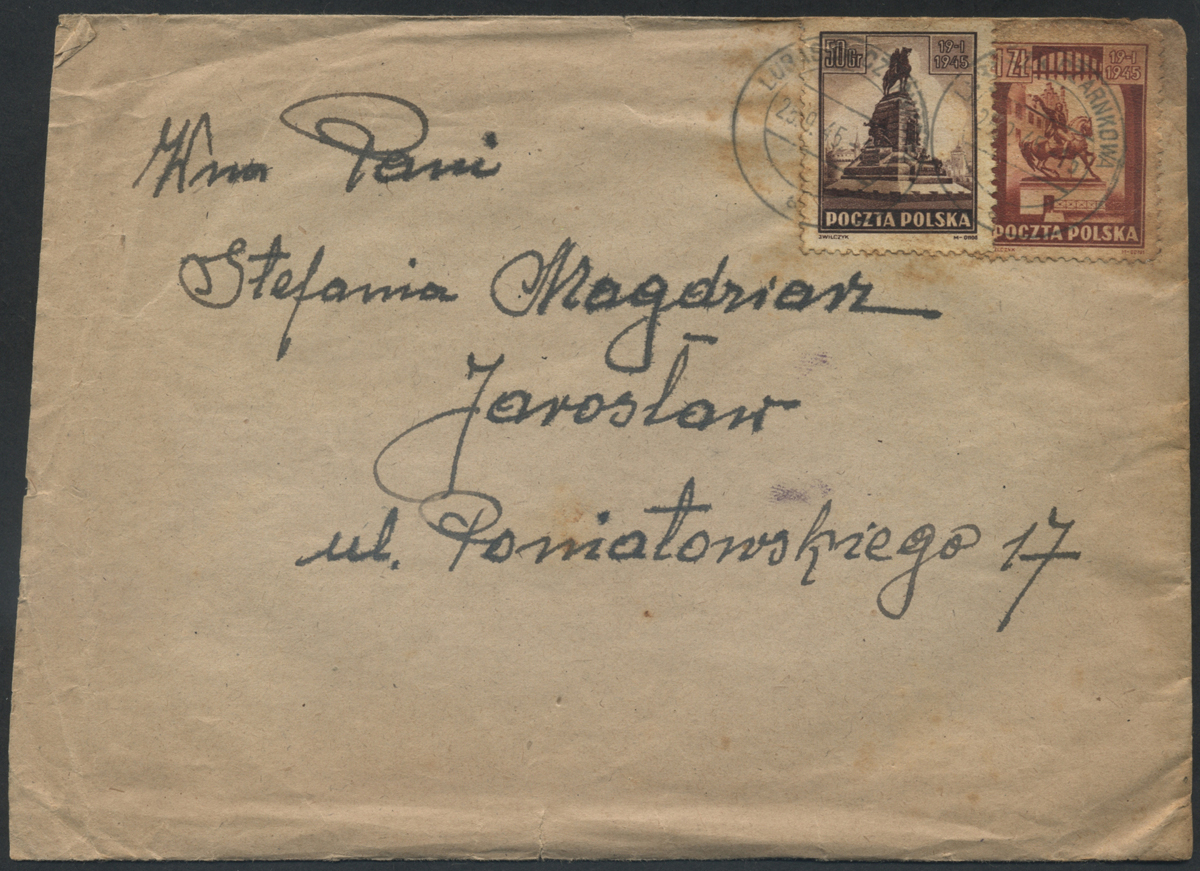 50 Gr
19-I
1945
POCZTA POLSKA
1 ZŁ
19-I
1945
POCZTA POLSKA
Wna Pani
Stefania Magdziarz
Jarosław
ul. Poniatowskiego 17